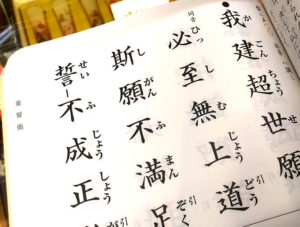 我建超世願
ごんちょうせ
同音
必至無上道
ひっしむじょうどう引
斯願不満足
しがんふまんぞく引
誓不成正
せいーふじょうしょう
重誓偈